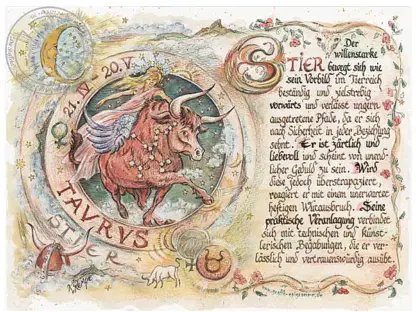 21.IV. 20.V.
TAVRVS
STIER
Der
willensstarke
STIER bewegt sich wie
sein Vorbild im Tierreich
beständig und zielstrebig
vorwärts und verlässt ungern
ausgetretene Pfade, da er sich
nach Sicherheit in jeder Beziehung
sehnt. Er ist zärtlich und
liebevoll und scheint von unend-
licher Geduld zu sein. Wird
diese jedoch überstrapaziert,
reagiert er mit einem unerwartet
heftigen Wutausbruch. Seine
praktische Veranlagung verbindet
sich mit technischen und künst-
lerischen Begabungen, die er ver-
lässlich und vertrauenswürdig ausübt.